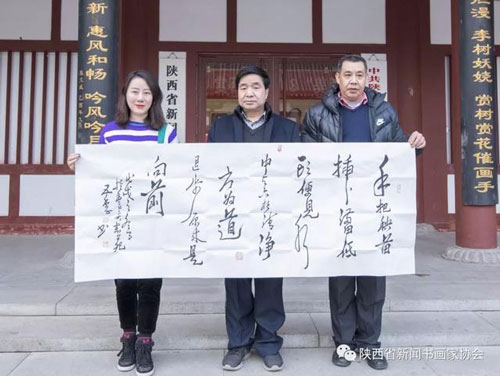 新 惠风和畅 吟风吟月
陕西省新闻
中共陕
漫 李树妖娆 赏树赏花催画手
手把秧苗
插滿田低
頭便見水
中天六根清净
方为道
退步原来是
向前
陕西省新闻书画家协会